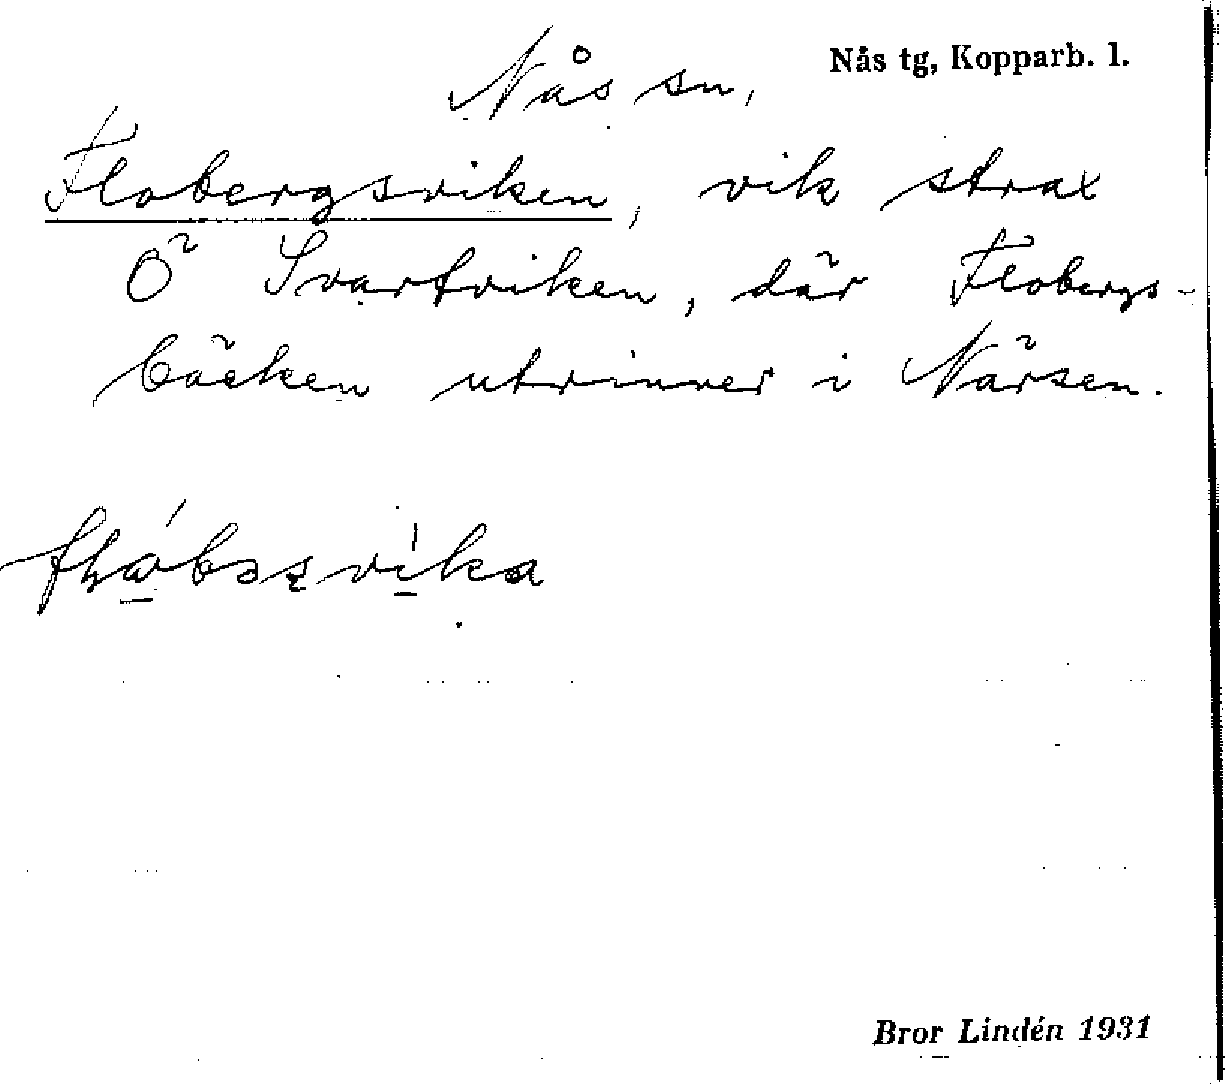 Nås sn, Nås tg, Kopparb. l.
Flobergsviken, vik strax
Ö Svartviken, där Flobergs-
bäcken utrinner i Närsen.
Bror Lindén 1931